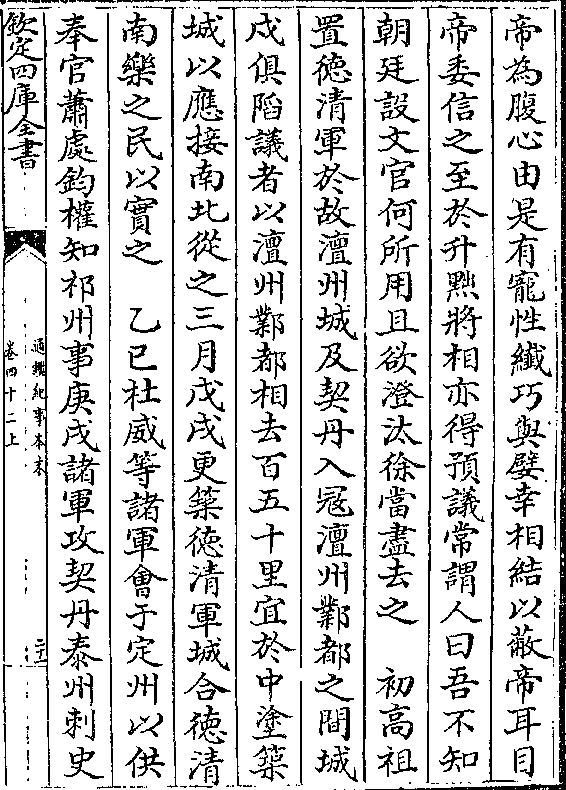 帝為腹心由是有寵性纎巧與嬖幸相結以蔽帝耳目
帝委信之至於升黜將相亦得預議常謂人曰吾不知
朝廷設文官何所用且欲澄汰徐當盡去之　初高祖
置徳清軍於故澶州城及契丹入冦澶州鄴都之間城
戍俱陷議者以澶州鄴都相去百五十里宜於中塗築
城以應接南北從之三月戊戌更築徳清軍城合徳清
南樂之民以實之　乙巳杜威等諸軍會于定州以供
奉官蕭處鈞權知祁州事庚戌諸軍攻契丹泰州刺史
欽定四庫全書
通鑑紀事本末
卷四十二上